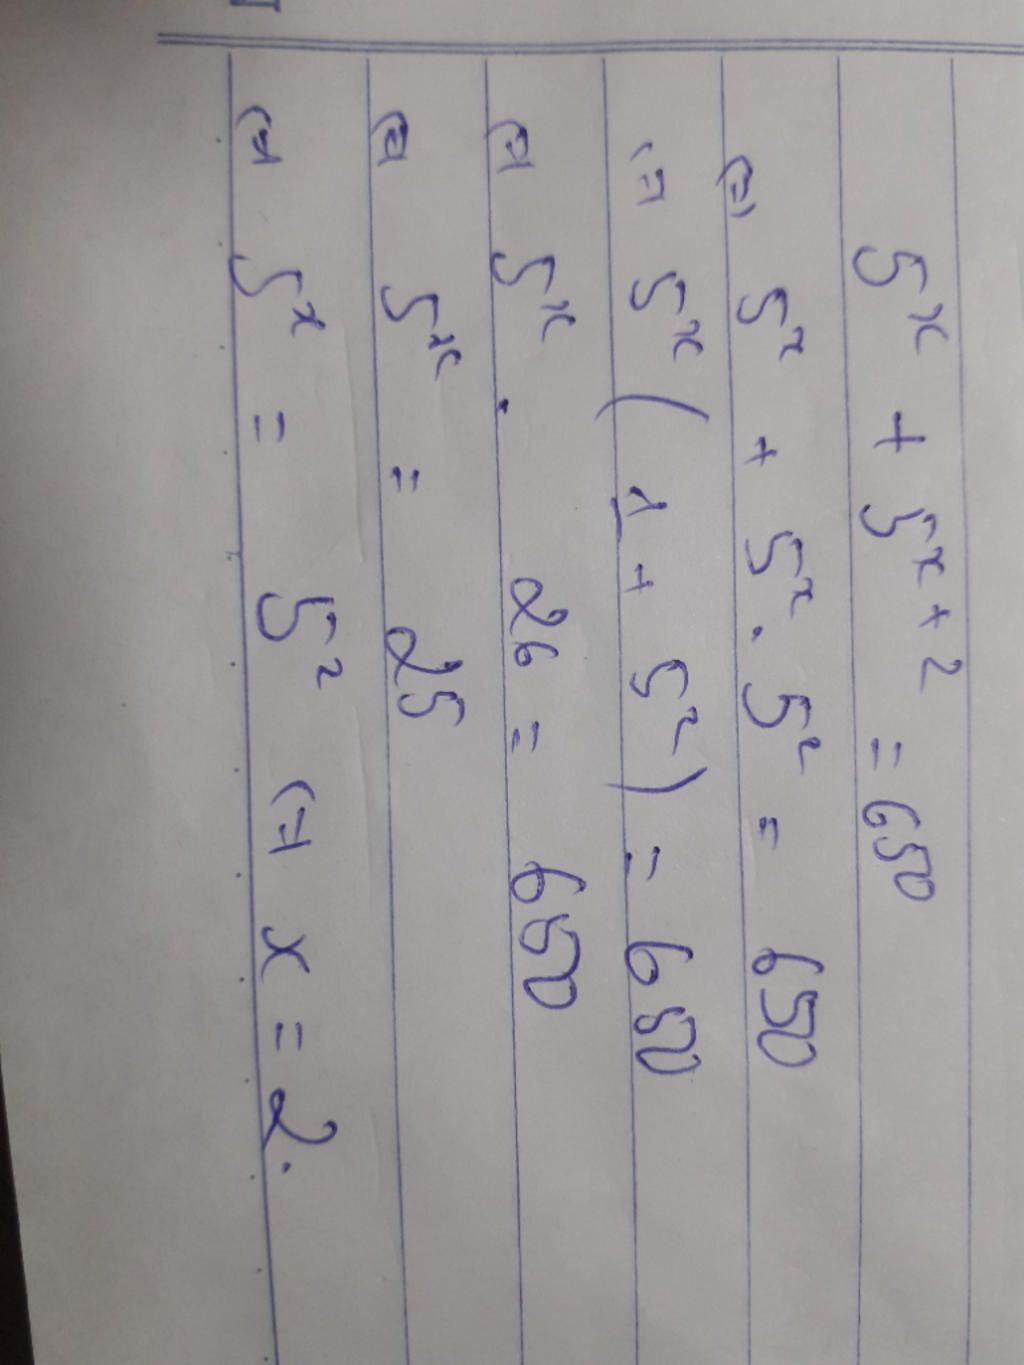 5ˣ + 5ˣ⁺² = 650
(=) 5ˣ + 5ˣ . 5² = 650
(=) 5ˣ ( 1 + 5² ) = 650
(=) 5ˣ . 26 = 650
(=) 5ˣ = 25
(=) 5ˣ = 5² (=) x = 2.